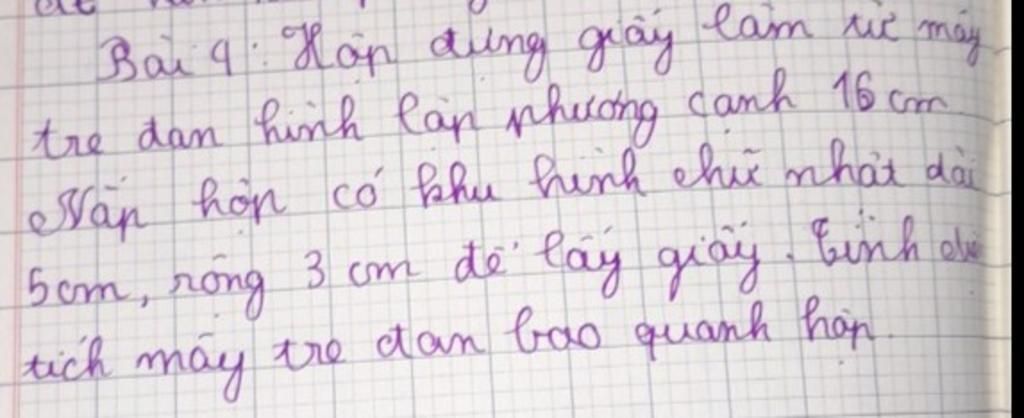 Bài 9: Hộp đựng giấy làm từ mây
tre đan hình lập phương cạnh 16 cm
Nắp hộp có khu hình chữ nhật dài
5cm, rộng 3 cm để lấy giấy. Tính
tích mây tre đan bao quanh hộp.